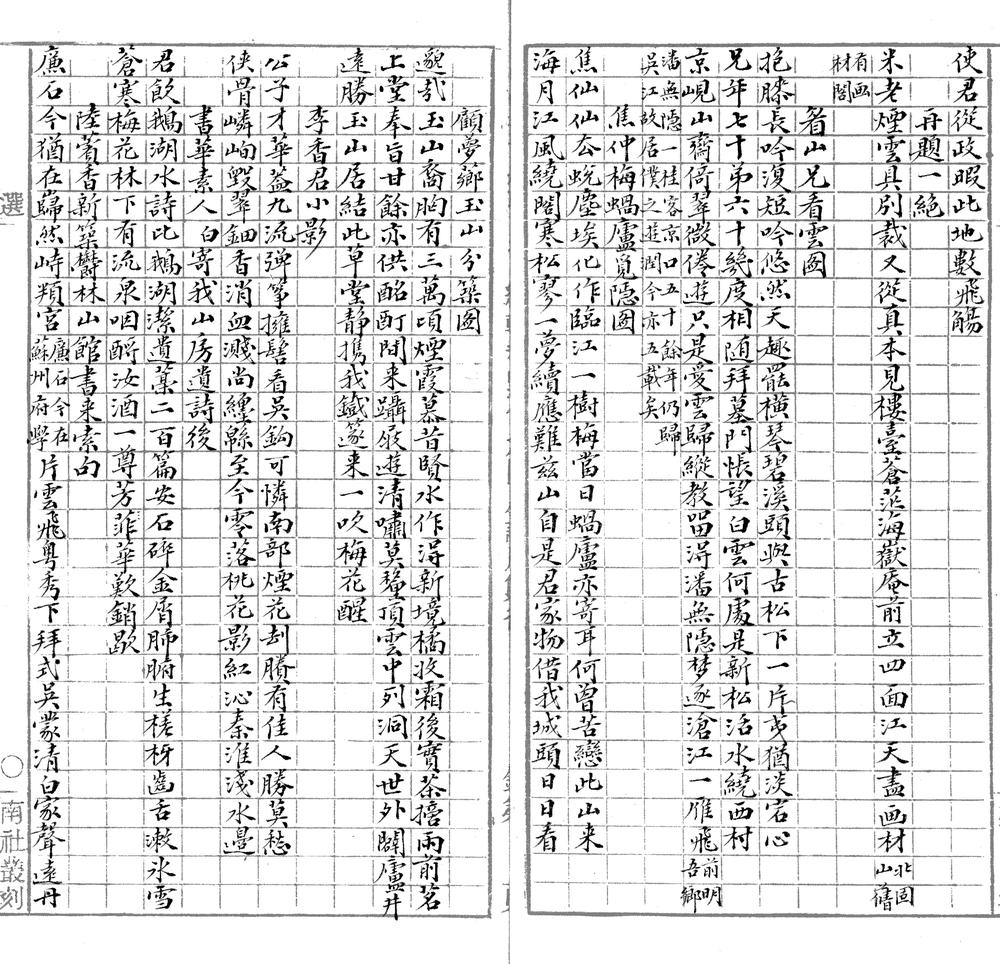 使君從政暇此地數飛觴
再題一絕
米老煙雲具別裁又從真本見樓臺蒼茫海嶽庵前立四面江天盡画材北固山舊
有画材閣
看山兄看雲圖
抱膝長吟復短吟悠然天趣罷橫琴碧溪頭與古松下一片夷猶淡宕心
兄年七十弟六十幾度相随拜墓門悵望白雲何處是新松活水繞西村
京峴山齋倚翠微倦遊只是愛雲歸縱教留得潘無隱梦逐滄江一雁飛前明吾鄉
潘無隱一桂客京口五十餘年仍歸吳江故居僕之遊潤今亦五載矣
焦仲梅蝸廬覓隱圖
焦仙仙去蛻塵埃化作臨江一樹梅當日蝸廬亦寄耳何曾苦戀此山来
海月江風繞閣寒松寥一夢續應難兹山自是君家物借我城頭日日看
顧夢薌玉山分築圖
邈哉玉山裔胸有三萬頃煙霞慕昔賢水作淂新境橘收霜後實茶擣雨前茗
上堂奉旨甘餘亦供酩酊閒来躡屐遊清嘯莫釐頂雲中列洞天世外闢廬井
遠勝玉山居結此草堂静携我鐵篴来一吹梅花醒
李香君小影
公子才華蓋九流彈箏擁髻看吳鈎可憐南部煙花刦賸有佳人勝莫愁
俠骨嶙峋毀翠鈿香消血濺尚纏緜至今零落桃花影紅沁秦淮淺水邊
書華素人白寄我山房遺詩後
君飲鵝湖水詩比鵝湖潔遺藁二百篇安石碎金屑肺腑生槎枒齒舌漱氷雪
蒼寒梅花林下有流泉咽酹汝酒一尊芳菲華歎銷歇
陸蓍香新築鬱林山館書来索句
廉石今猶在巋然峙頖宮廉石今在蘇州府學片雲飛粤秀下拜式吳蒙清白家聲遠丹
選
南社叢刻